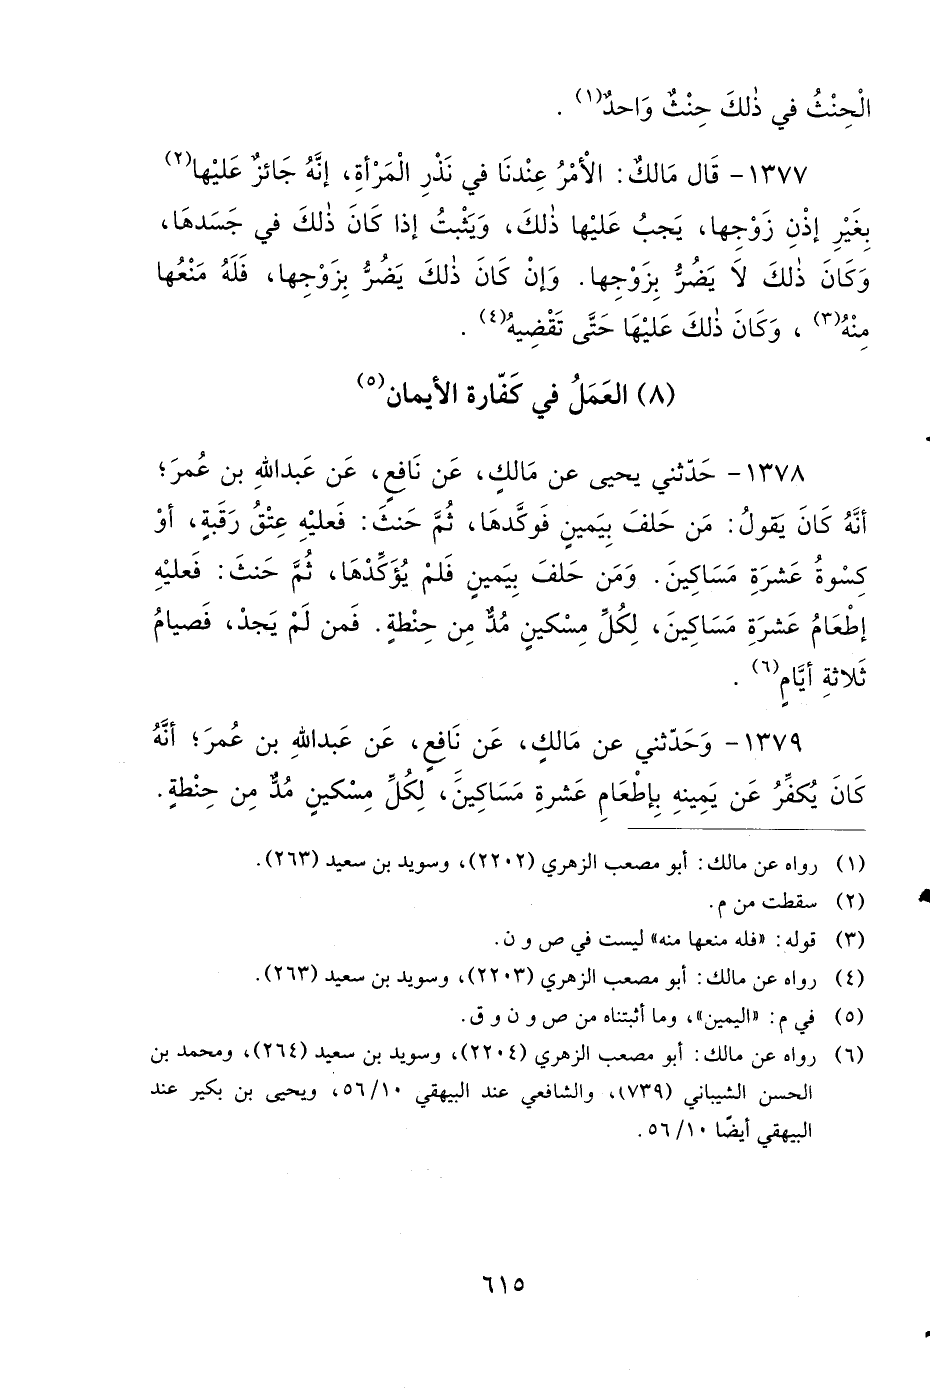 الْحِنْثُ في ذٰلكَ حِنْثٌ وَاحدٌ(١) .
١٣٧٧- قَال مَالكٌ: الْأمْرُ عِنْدنَا في نَذْرِ الْمَرْأةِ، إنَّهُ جَائزٌ عَليْها(٢)
بِغَيْرِ إذْنِ زَوْجِها، يَجبُ عَليْها ذٰلكَ، وَيَثْبتُ إذا كَانَ ذٰلكَ في جَسَدهَا،
وَكَانَ ذٰلكَ لاَ يَضُرُّ بِزَوْجِها. وَإنْ كَانَ ذٰلكَ يَضُرُّ بِزَوْجِها، فَلَهُ مَنْعُها
مِنْهُ(٣) ، وَكَانَ ذٰلكَ عَليْهَا حَتَّى تَقْضيهُ(٤) .
(٨) العَمَلُ في كَفّارة الأيمان(٥)
١٣٧٨- حَدّثني يحيى عن مَالكٍ، عَن نَافعٍ، عَن عَبدالله بن عُمرَ؛
أنَّهُ كَانَ يَقولُ: مَن حَلفَ بِيَمينٍ فَوكَّدهَا، ثُمَّ حَنثَ: فَعليْهِ عِتْقُ رَقَبةٍ، أوْ
كِسْوةُ عَشرَةِ مَسَاكينَ. وَمَن حَلفَ بِيَمينٍ فَلمْ يُؤَكِّدْهَا، ثُمَّ حَنثَ: فَعليْهِ
إطْعَامُ عَشرَةِ مَسَاكينَ، لِكُلِّ مِسْكينٍ مُدٌّ مِن حِنْطةٍ. فَمن لَمْ يَجدْ، فَصيامُ
ثَلاثةِ أيَّامٍ(٦) .
١٣٧٩- وَحَدّثني عن مَالكٍ، عَن نَافعٍ، عَن عَبدالله بن عُمرَ؛ أنَّهُ
كَانَ يُكفِّرُ عَن يَمِينهِ بِإطْعَامِ عَشرةِ مَسَاكينَ، لِكُلِّ مِسْكينٍ مُدٌّ مِن حِنْطةٍ.
(١) رواه عن مالك: أبو مصعب الزهري (٢٢٠٢)، وسويد بن سعيد (٢٦٣).
(٢) سقطت من م.
(٣) قوله: «فله منعها منه» ليست في ص و ن.
(٤) رواه عن مالك: أبو مصعب الزهري (٢٢٠٣)، وسويد بن سعيد (٢٦٣).
(٥) في م: «اليمين»، وما أثبتناه من ص و ن و ق.
(٦) رواه عن مالك: أبو مصعب الزهري (٢٢٠٤)، وسويد بن سعيد (٢٦٤)، ومحمد بن
الحسن الشيباني (٧٣٩)، والشافعي عند البيهقي ٥٦/١٠، ويحيى بن بكير عند
البيهقي أيضًا ٥٦/١٠.
٦١٥